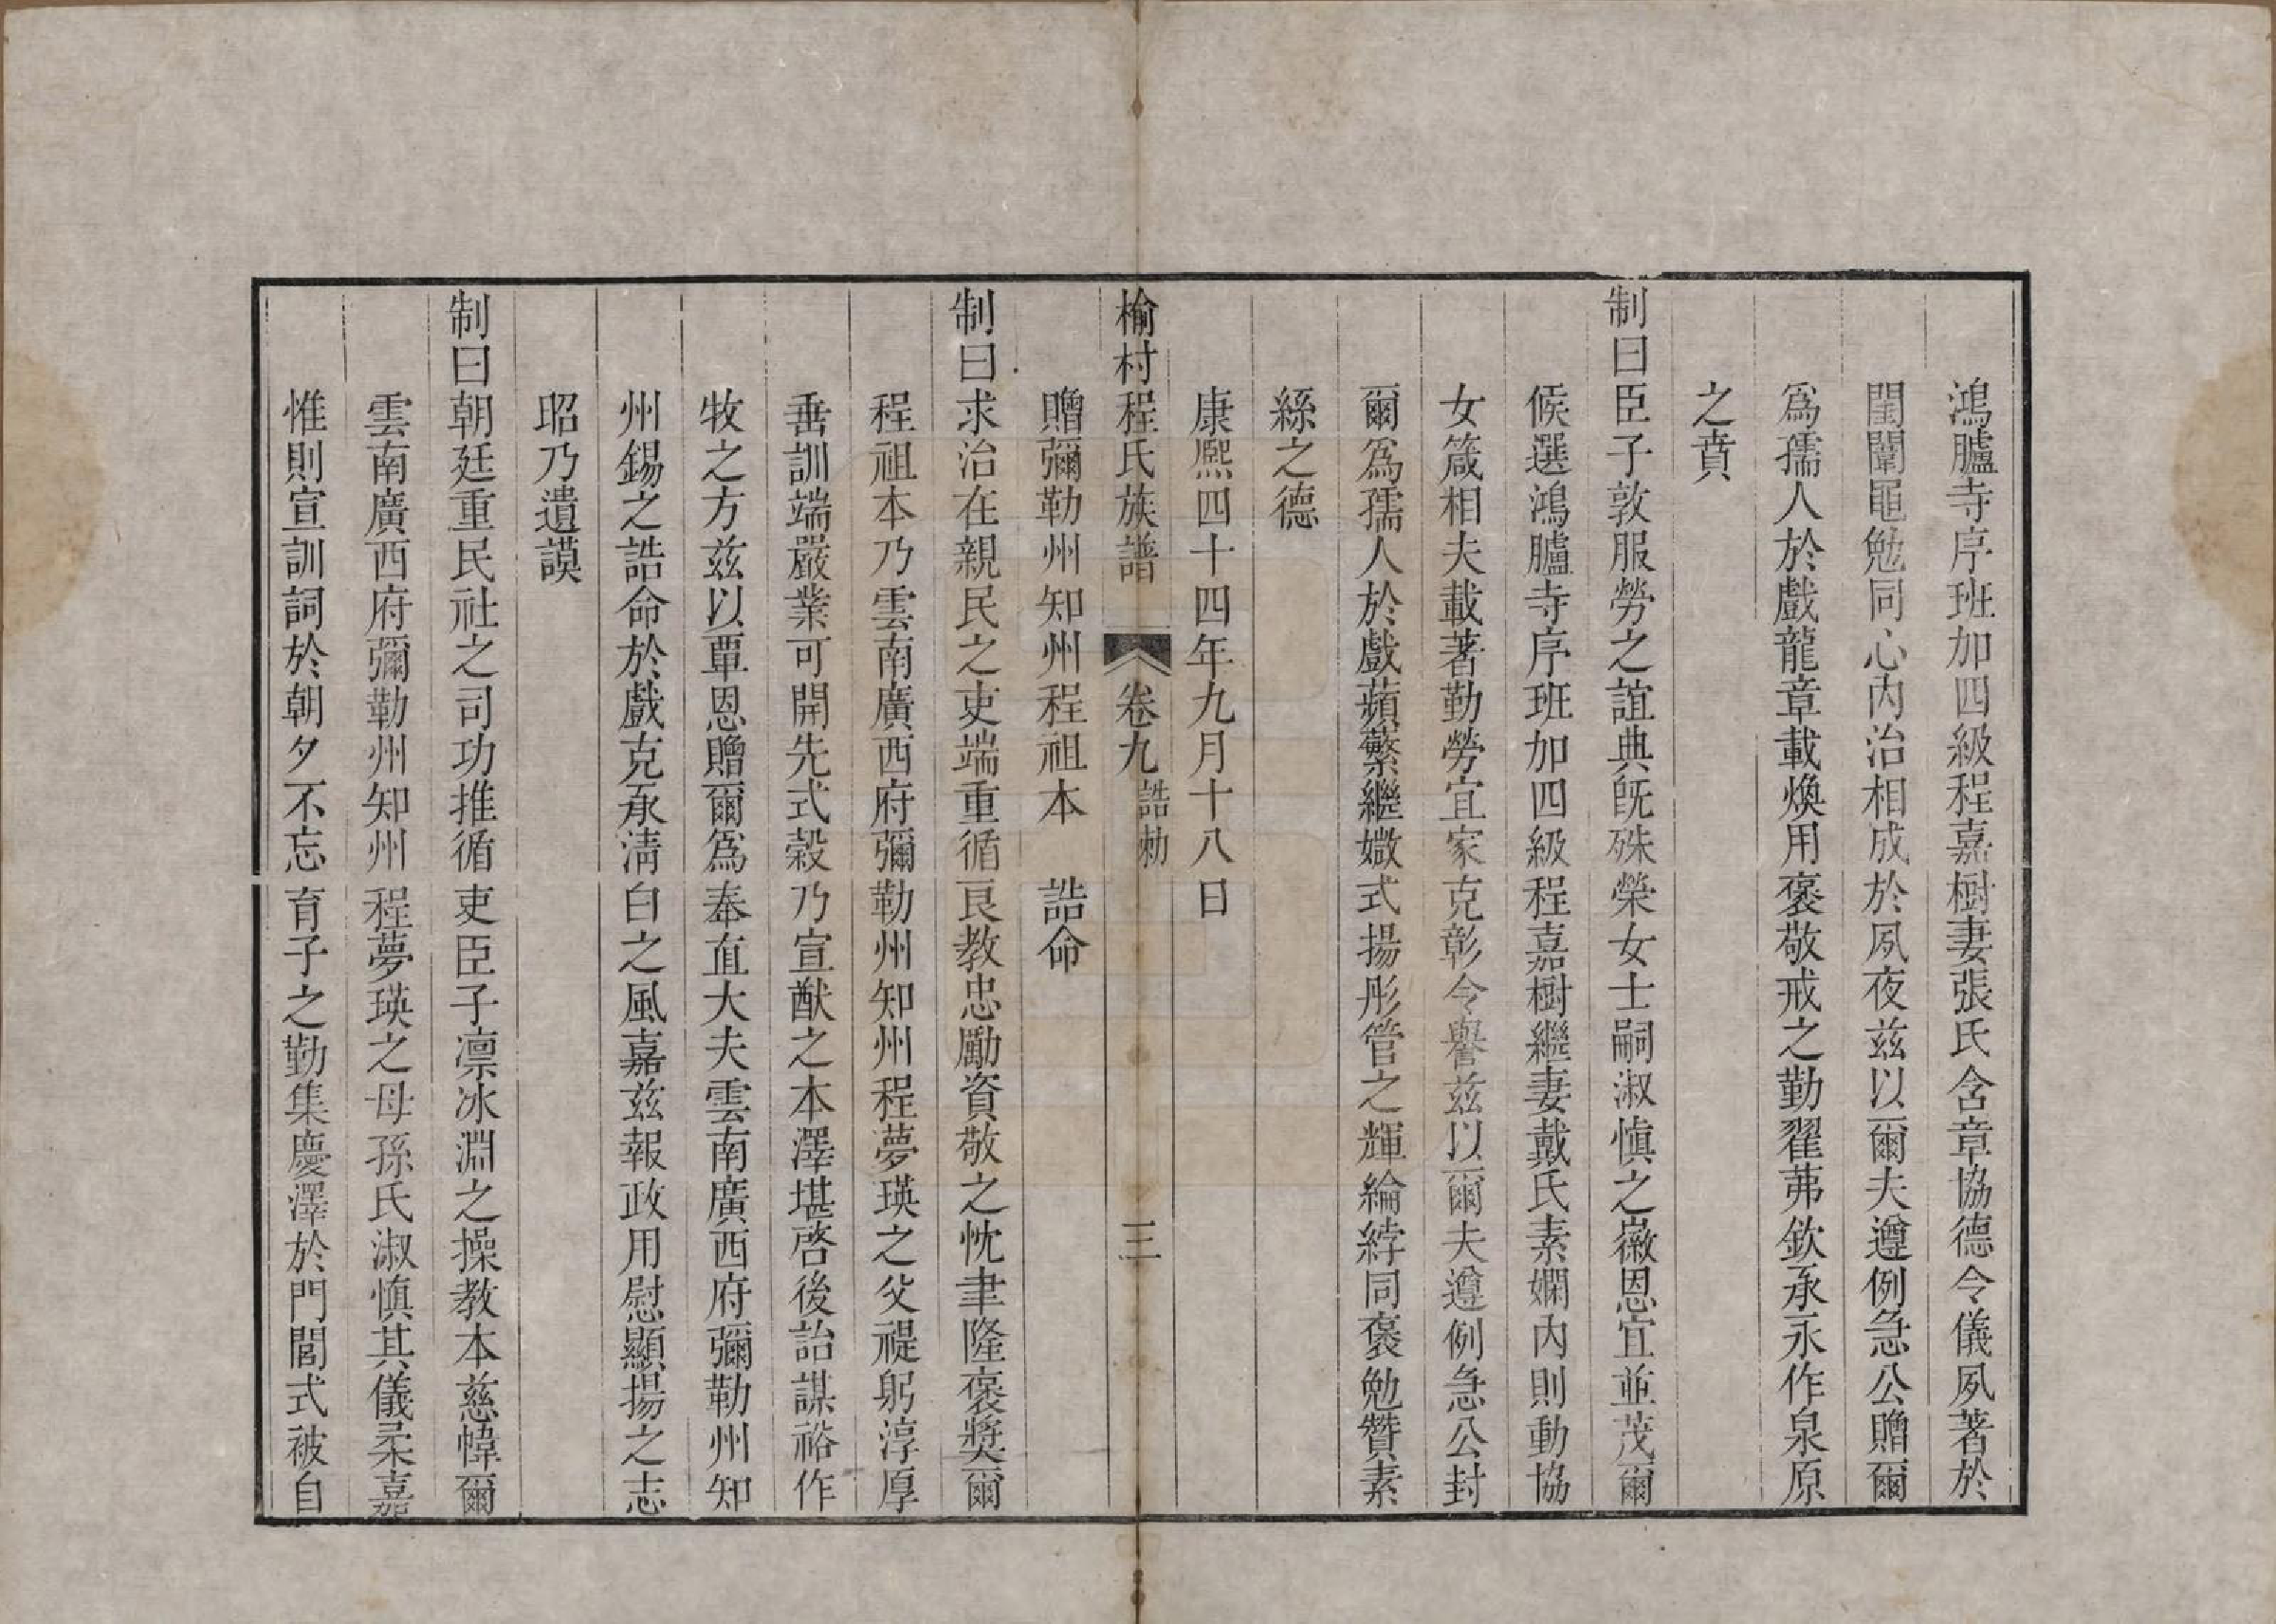 鴻臚寺序班加四級程嘉樹妻張氏含章協德令儀夙著於
閨闈黽勉同心內治相成於夙夜兹以爾夫遵例急公贈爾
爲孺人於戲龍章載煥用褒敬戒之勤翟茀欽承永作泉原
之賁
制曰臣子敦服勞之誼典旣殊榮女士嗣淑慎之徽恩宜並茂爾
候選鴻臚寺序班加四級程嘉樹繼妻戴氏素嫻內則動協
女箴相夫載著勤勞宜家克彰令譽兹以爾夫遵例急公封
爾爲孺人於戲蘋蘩繼媺式揚彤管之輝綸綍同褒勉贊素
絲之德
康熙四十四年九月十八日
榆村程氏族譜 卷九 誥勅 三
贈彌勒州知州程祖本 誥命
制曰求治在親民之吏端重循良教忠勵資敬之忱聿隆褒獎爾
程祖本乃雲南廣西府彌勒州知州程夢瑛之父禔躬淳厚
垂訓端嚴業可開先式穀乃宣猷之本澤堪啓後詒謀裕作
牧之方兹以覃恩贈爾爲奉直大夫雲南廣西府彌勒州知
州錫之誥命於戲克承清白之風嘉兹報政用慰顯揚之志
昭乃遺謨
制曰朝廷重民社之司功推循吏臣子凛冰淵之操教本慈幃爾
雲南廣西府彌勒州知州程夢瑛之母孫氏淑慎其儀柔嘉
惟則宣訓詞於朝夕不忘育子之勤集慶澤於門閭式被自